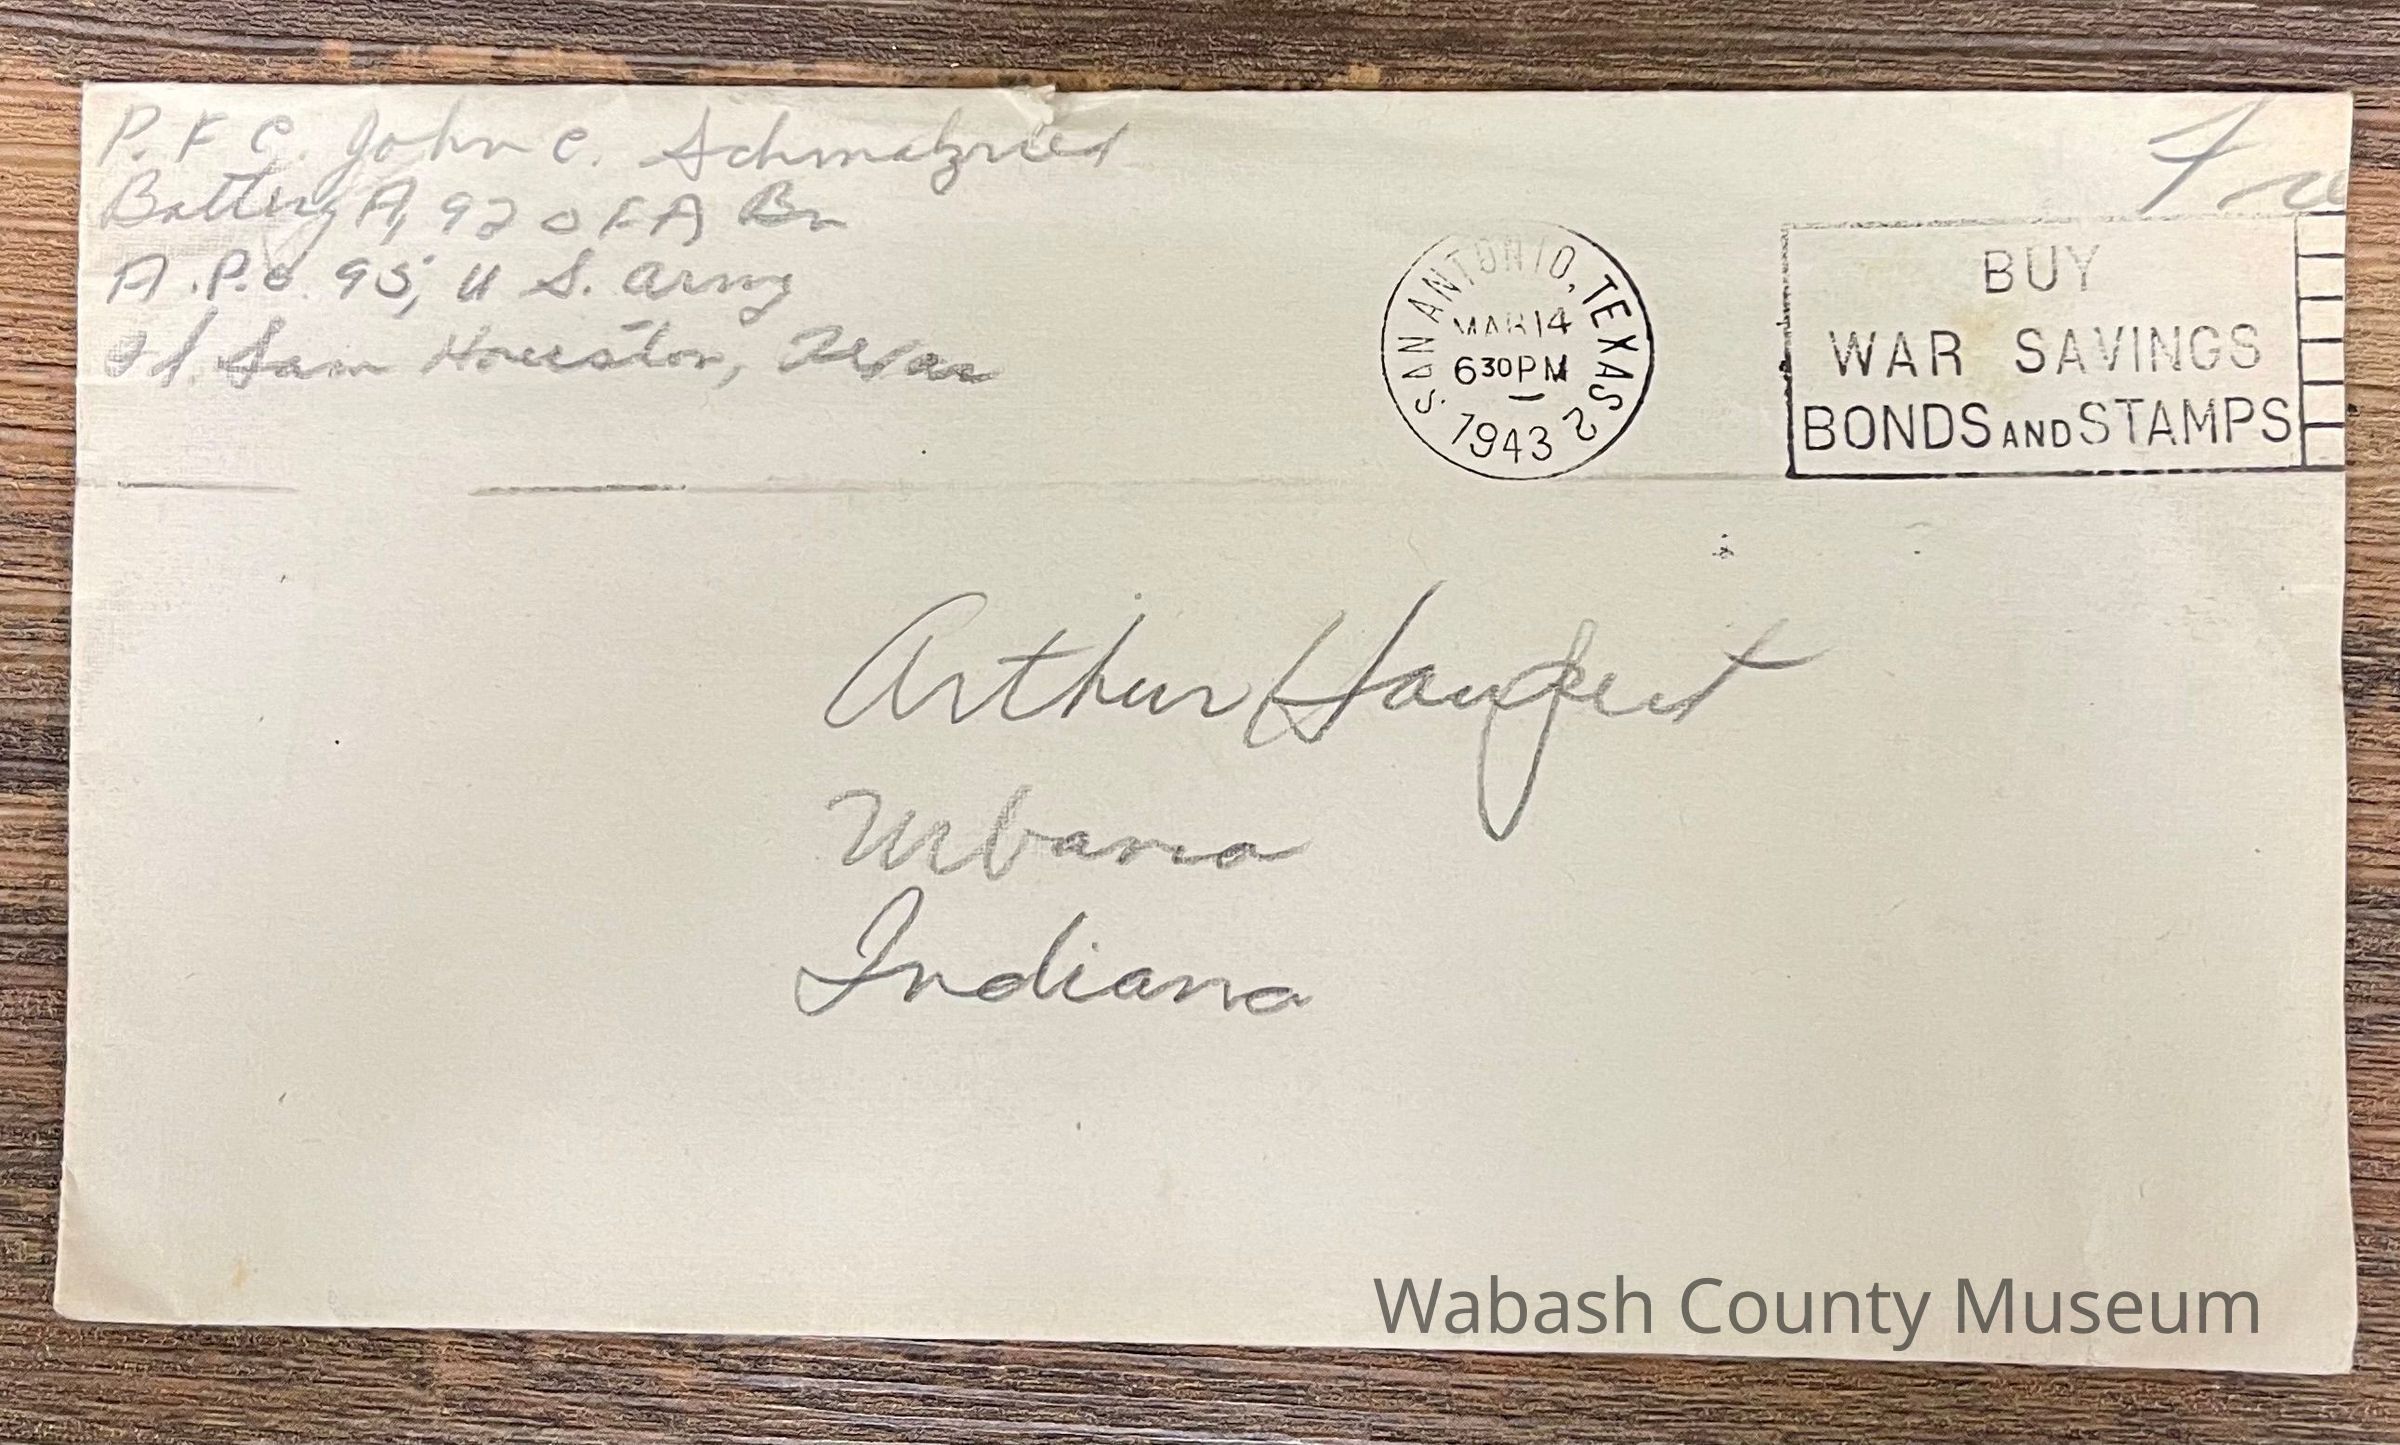 P. F C. John C. Schmalzried
Battery A, 920 F A Bn
A.P.O. 95, U S. Army
Ft. Sam Houston, Texas
Free
SAN ANTONIO, TEXAS 2
MAR 14
630PM
1943
BUY
WAR SAVINGS
BONDS AND STAMPS
Arthur Haupert
Urbana
Indiana
Wabash County Museum